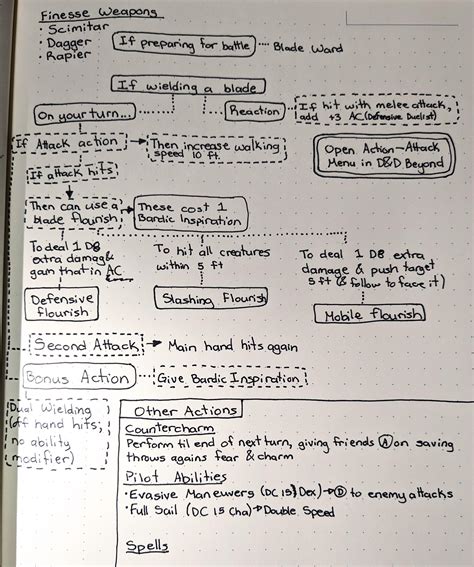 Finesse Weapons
· Scimitar
· Dagger
· Rapier
If preparing for battle
Blade Ward
If wielding a blade
On your turn...
Reaction
If hit with melee attack,
add +3 AC (Defensive Duelist)
If Attack action
Then increase walking
speed 10 ft.
Open Action-Attack
Menu in D&D Beyond
If attack hits
Then can use a
blade flourish
These cost 1
Bardic Inspiration
To deal 1 D8
extra damag&
gain that in AC
Defensive
flourish
To hit all creatures
within 5 ft
Slashing Flourish
To deal 1 D8 extra
damage & push target
5ft (& follow to face it)
Mobile flourish
Second Attack
Main hand hits again
Bonus Action
Give Bardic Inspiration
Dual Wielding
(off hand hits;
no ability
modifier)
Other Actions
Countercharm
Perform til end of next turn, giving friends A on saving
throws agains fear & charm
Pilot Abilities
· Evasive Maneuvers (DC 15 Dex) → D to enemy attacks
· Full Sail (DC 15 Cha) → Double Speed
Spells